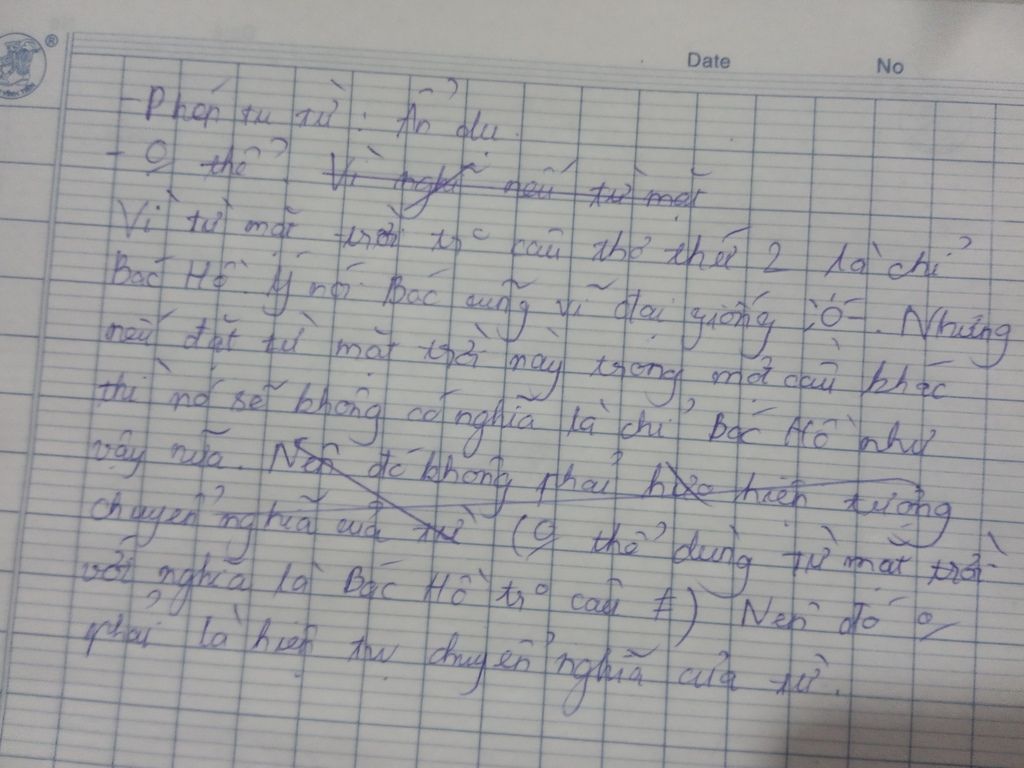 Date No
- Phép tu từ: Ẩn dụ.
- 0 thể. Vì nghĩ nếu từ mặt
Vì từ mặt trời trº câu thơ thứ 2 là chỉ
Bác Hồ. Ý nói Bác cũng vĩ đại giống . Nhưng
nếu đặt từ mặt trời này trong một câu khác
thì nó sẽ không có nghĩa là chỉ Bác Hồ như
vậy nữa. Nên đó không phải hiện tượng
chuyển nghĩa của từ (0 thể dùng từ mặt trời
với nghĩa là Bác Hồ trº câu ≠) Nên đó 0
phải là hiện tư chuyển nghĩa của từ.